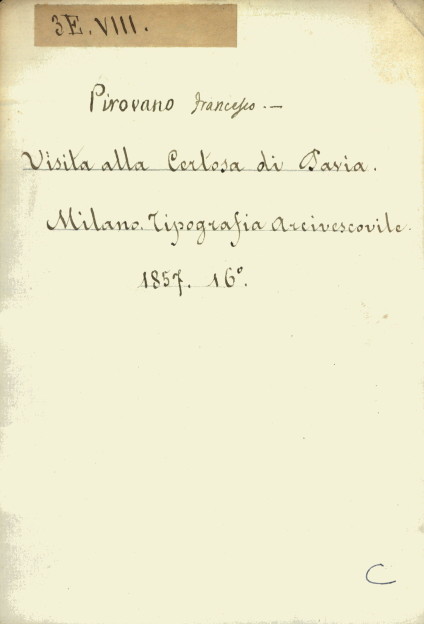 3E.VIII.
Pirovano Francesco. —
Visita alla Certosa di Pavia.
Milano. Tipografia Arcivescovile.
1857. 16°.
C